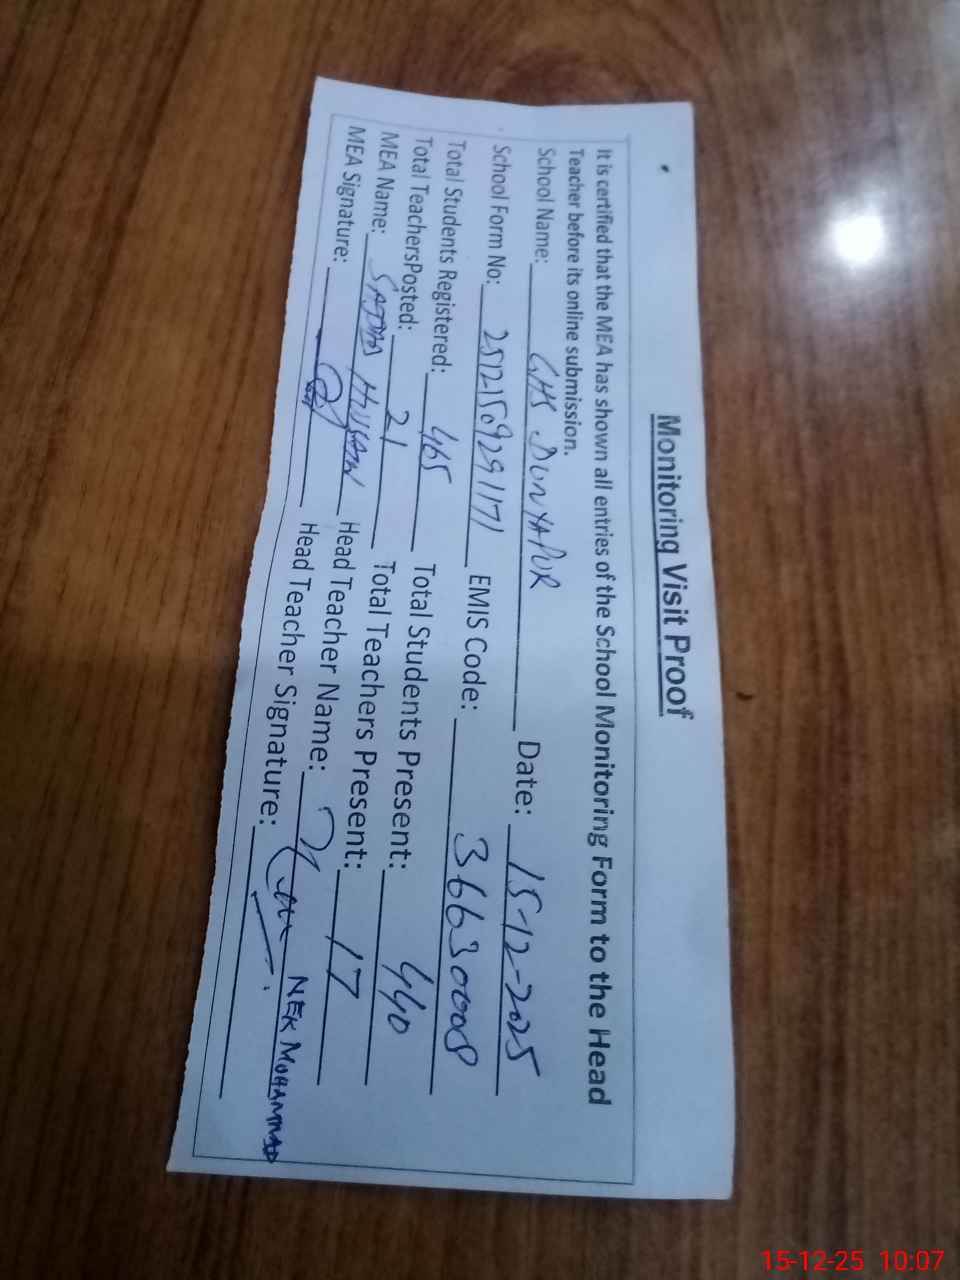 Monitoring Visit Proof
It is certified that the MEA has shown all entries of the School Monitoring Form to the Head
Teacher before its online submission.
School Name: GHS DUNYAPUR Date: 15-12-2025
School Form No: EMIS Code: 36630008
Total Students Registered: 465 Total Students Present: 440
Total TeachersPosted: 21 Total Teachers Present: 17
MEA Name: HUSSAIN Head Teacher Name: NEK MOHAMMAD
MEA Signature: Head Teacher Signature:
15-12-25 10:07